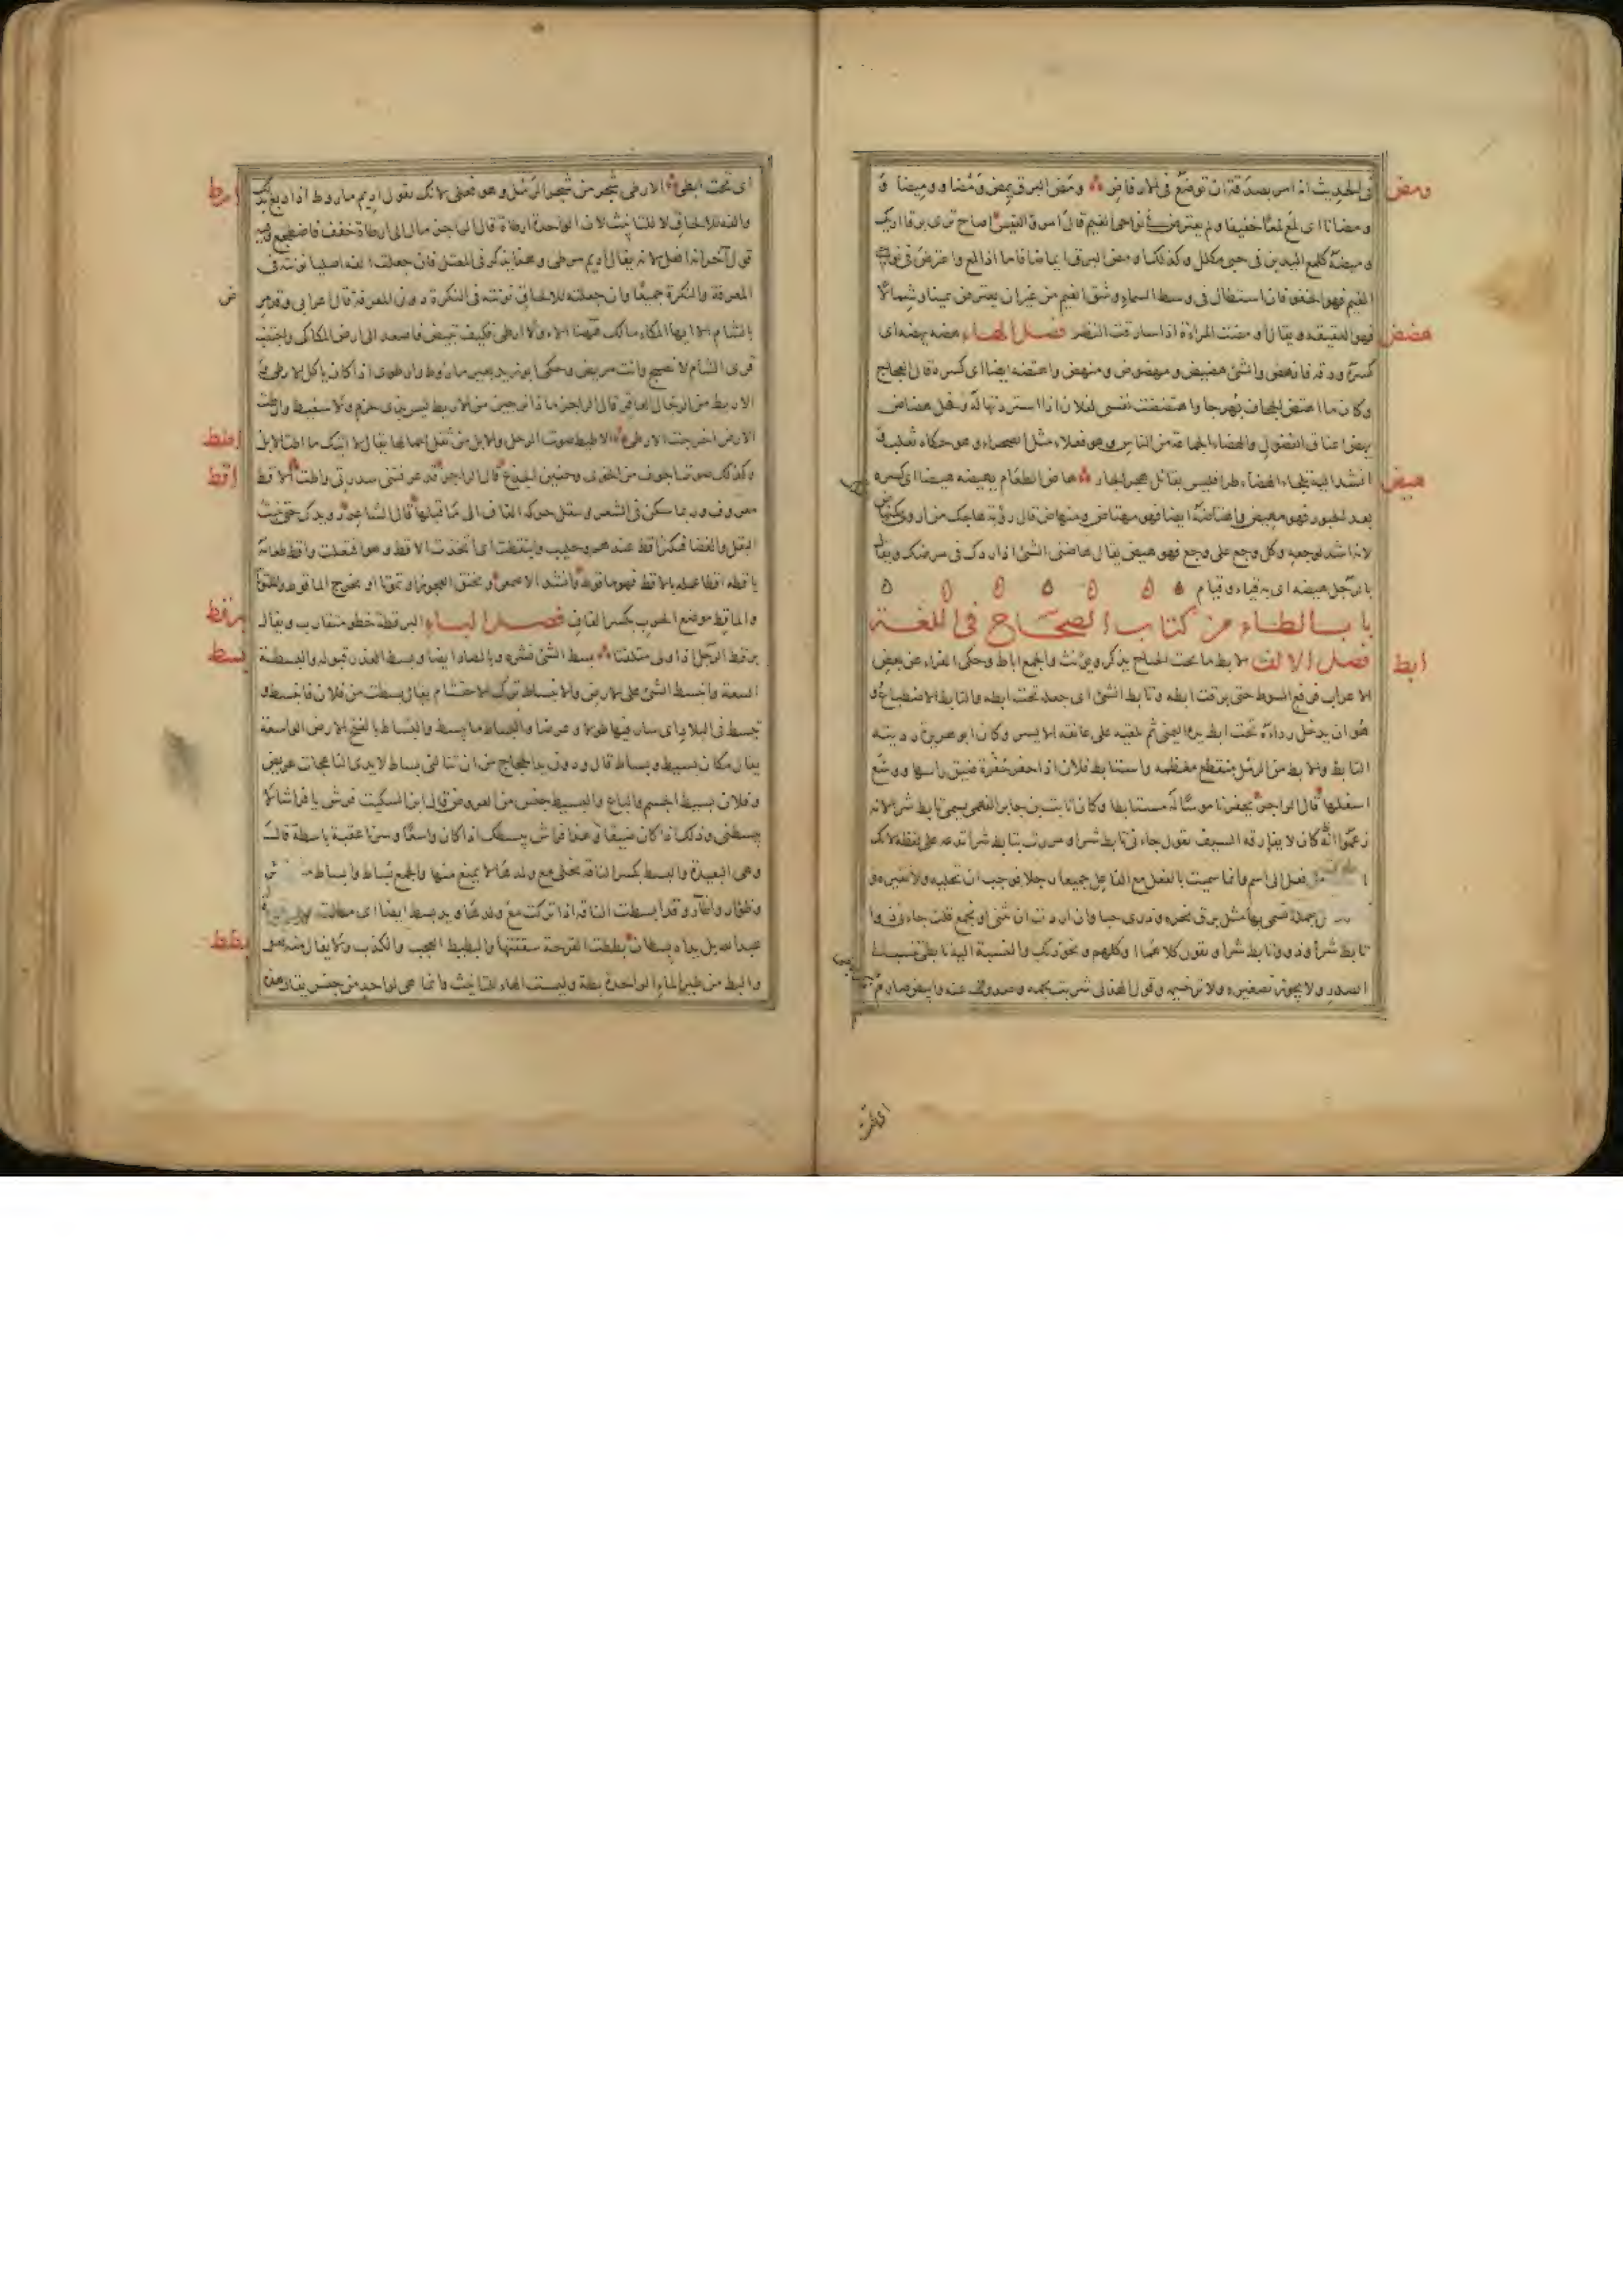 ومض
في الحديث انه امر بصدقة ان توضع في الاوفاض ومض البرق يمض ومضا ووميضا و
ومضانا اى لمع لمعا خفيفا ولم يعترض في نواحي الغيم قال امرؤ القيس اصاح ترى برقا اريك
وميضه كلمع اليدين في حبي مكلل وكذلك اومض البرق ايماضا فاما اذا لمع واعترض في نواحي
الغيم فهو الخفو فان استطال في وسط السماء وشق الغيم من غير ان يعترض يمينا وشمالا
هضض
فهو العقيقة ويقال اومضت المراة اذا سارقت النظر فصل الهاء هضه يهضه اى
كسره ودقه فانهض والشئ هضيض ومهضوض ومنهض واهتضه ايضا اى كسره قال العجاج
وكان ما اهتض الجحاف بهرجا واهتضضت نفسي لفلان اذا استزدتها له وفحل هضاض
يهض اعناق الفحول والهضاء الجماعة من الناس وهو فعلاء مثل الصحراء وهو حكاه ثعلب
هيض
هاض الطعام يهيضه هيضا اى كسره
بعد الجبور فهو مهيض واهتاضه ايضا فهو مهتاض ومنهاض قال رؤبة هاجك من اروى
لانه اشد لوجعه وكل وجع على وجع فهو هيض يقال هاضني الشئ اذا ردك في مرضك ويقال
بالرجل هيضة اى به قياء وقيام
باب الطاء من كتاب الصحاح في اللغة
ابط
فصل الالف الابط ما تحت الجناح يذكر ويؤنث والجمع اباط وحكى الفراء عن بعض
الاعراب فرفع السوط حتى برقت ابطه وتابط الشئ اى جعله تحت ابطه والتابط الاضطباع و
هو ان يدخل رداءه تحت ابط يده اليمنى ثم يلقيه على عاتقه الايسر وكان ابو هريرة رديته
التابط والابط من الرمل منقطع معظمه واستابط فلان اذا حفر حفرة ضيق راسها ووسع
اسفلها قال الراجز يحفر ناموسا له مستابطا وكان ثابت بن جابر الفهمي يسمى تابط شرا لانه
زعموا انه كان لا يفارقه السيف تقول جاءني تابط شرا ومررت بتابط شرا تدعه على لفظه لانك
فعل الى اسم وانما سميت بالفعل مع الفاعل جميعا رجلا فوجب ان تحكيه ولا تغيره و
جملة تسمى بها مثل برق نحره وذرى حبا وان اردت ان تثنى او تجمع قلت جاءني ذوا
تابط شرا وذوو تابط شرا او تقول كلاهما او كلهم ونحو ذلك والنسبة اليه تابطي تنسب الى
الصدر ولا يجوز تصغيره ولا ترخيمه وقول الهذلي شربت بجمه وصدرت عنه وابيض صارم
اى تحت
ارط
اى تحت ابطي الارطى شجر من شجر الرمل وهو فعلى لانك تقول اديم ماروط اذا دبغ بذلك
والفه للالحاق لا للتانيث لان الواحدة ارطاة قال الراجز مال الى ارطاة حقف فاضطجع وفيه
قول آخر انه افعل لانه يقال اديم مرطي وهذا يذكر في المعتل فان جعلت الفه اصليا نونته في
المعرفة والنكرة جميعا وان جعلته للالحاق نونته في النكرة دون المعرفة قال اعرابي وقد مرض
بالشام الا ايها المكاء مالك ههنا الاء ولا ارطى فكيف تبيض فاصعد الى ارض المكاكي واجتنب
قرى الشام لا تصبح وانت مريض وحكى ابو زيد بعير ماروط وارطوى اذا كان ياكل الارطى
الاريط من الرجال العاقر قال الراجز ماذا ترجين من الاريط ليس بذى حزم ولا سفيط وارطت
اطط
الارض اخرجت الارطى الاطيط صوت الرحل والابل من ثقل احمالها يقال لا اتيك ما اطت الابل
اقط
وكذلك صوت الجوف من الخوى وحنين الجذع قال الراجز قد عرفتني سدرتي واطت الاقط
معروف وربما سكن في الشعر وتنقل حركة القاف الى ما قبلها قال الشاعر رويدك حتى ينبت
البقل والغضا فيكثر اقط عندهم وحليب وايتقطت اى اتخذت الاقط وهو افتعلت واقط طعامه
ياقطه اقطا عمله بالاقط فهو ماقوط وانشد الاصمعي ويخنق العجوز او تموتا او تخرج الماقوط والملتوتا
برقط
والماقط موضع الحرب بكسر القاف فصل الباء البرقطة خطو متقارب ويقال
بسط
برقط الرجل اذا ولى متلفتا بسط الشئ نشره وبالصاد ايضا وبسط العذر قبوله والبسطة
السعة وانبسط الشئ على الارض والانبساط ترك الاحتشام يقال بسطت من فلان فانبسط و
تبسط في البلاد اى سار فيها طولا وعرضا والبساط ما يبسط والبساط بالفتح الارض الواسعة
يقال مكان بسيط وبساط قال ودون يد الحجاج من ان تنالني بساط لايدى الناعجات عريض
وفلان بسيط الجسم والباع والبسيط جنس من العروض قال ابن السكيت فرش لي فراشا لا
يبسطني وذلك اذا كان ضيقا وهذا فراش يبسطك اذا كان واسعا وسرنا عقبة باسطة قال
وهي البعيدة والبسط بكسر الناقة تخلى مع ولدها لا يمنع منها والجمع بساط وابساط
وظؤار واظآر وقد ابسطت الناقة اذا تركت مع ولدها ويد بسط ايضا اى مطلقة
بطط
عبد الله بل يداه بسطان بططت القرحة شققتها والبطيط العجب والكذب ولا يقال منه
والبط من طير الماء الواحدة بطة وليست الهاء للتانيث وانما هي لواحد من جنس يقال هذه